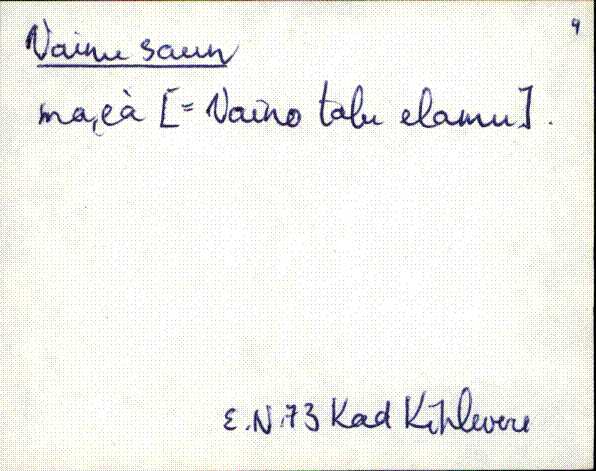 9
Vainu saun
ma, eà [= Vaino talu elamu].
E.N.73 Kad Kihlevere